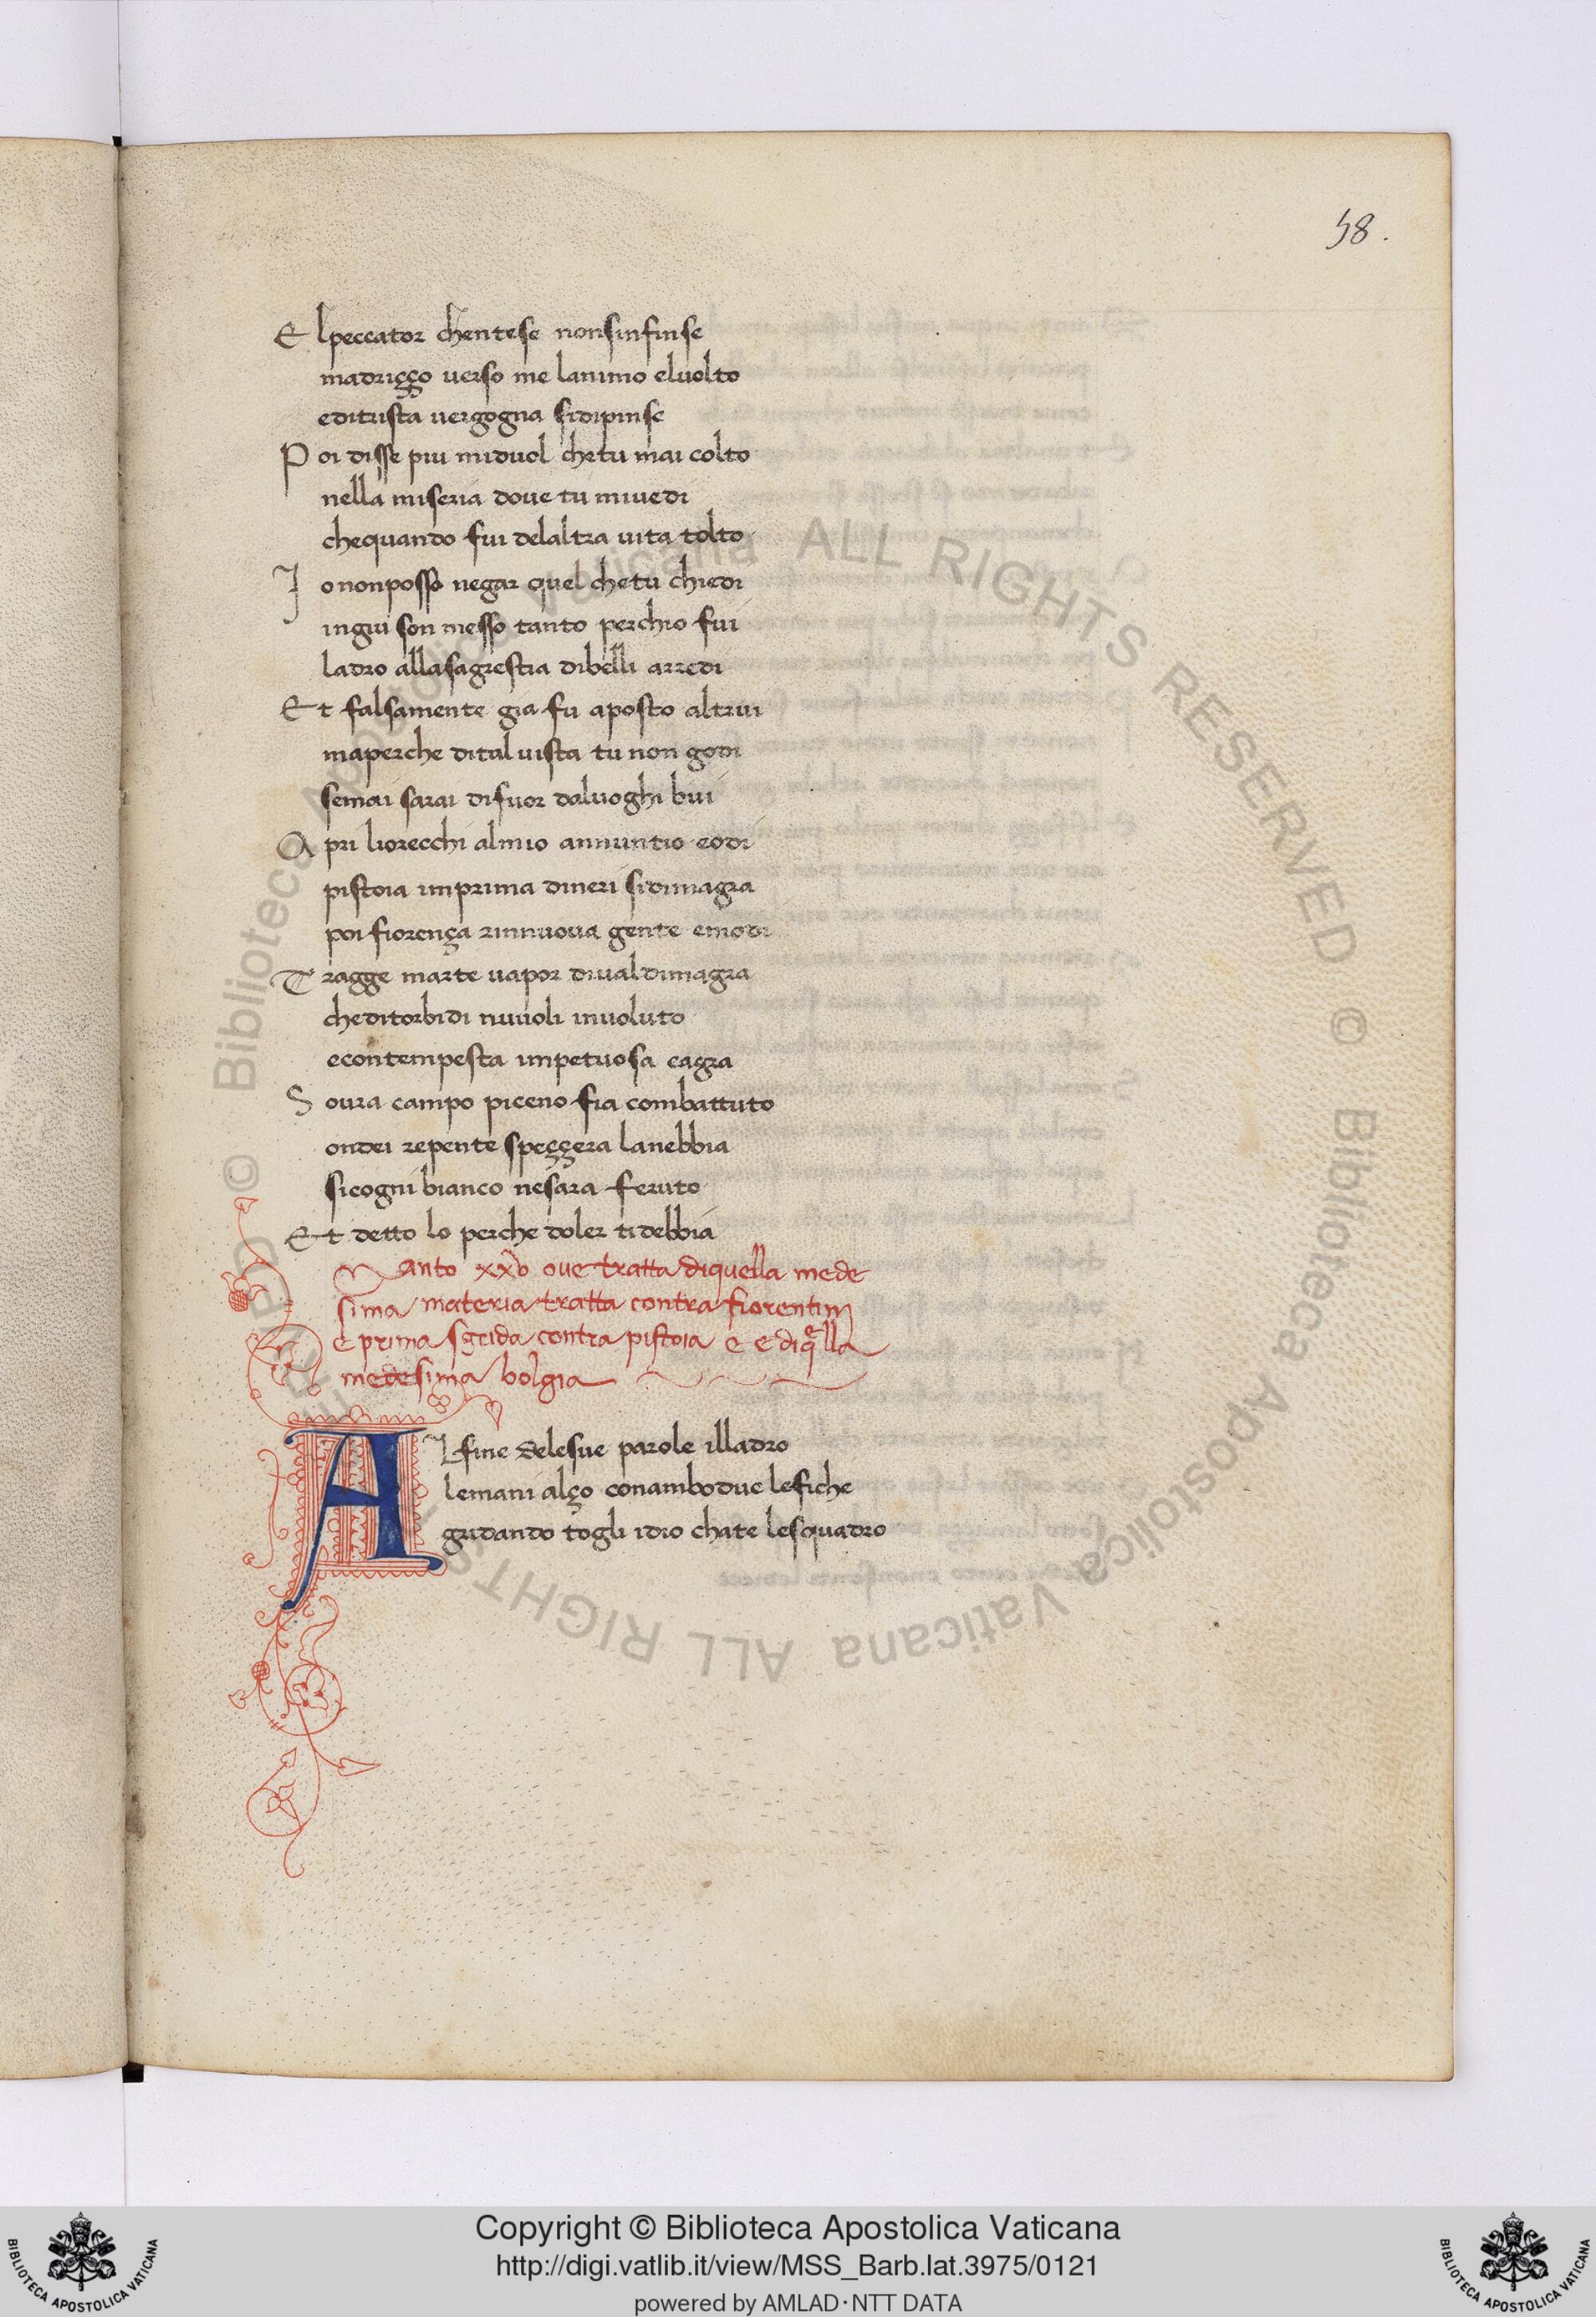 58.
E lpeccator chentese nonsinfinse
madriçço uerso me lanimo eluolto
editrista uergogna sidipinse
P oi disse piu miduol chetu mai colto
nella miseria doue tu miuedi
chequando fui delaltra uita tolto
J ononposso negar quel chetu chiedi
ingiu son messo tanto perchio fui
ladro allasagrestia dibelli arredi
E t falsamente gia fu aposto altrui
maperche dital uista tu non godi
semai sarai difuor daluoghi bui
A pri liorecchi almio annuntio eodi
pistoia imprima dineri sidimagra
poi fiorença rinnuoua gente emodi
T ragge marte uapor diualdimagra
cheditorbidi nuuoli inuoluto
econtempesta impetuosa eagra
S oura campo piceno fia combattuto
ondei repente speççera lanebbia
sicogni bianco nesara feruto
E t detto lo perche doler tidebbia
Canto xxv oue tratta diquella mede
sima materia tratta contra fiorentini
e prima sgrida contra pistoia e e diqlla
medesima bolgia
A Lfine delesue parole illadro
lemani alço conambodue lefiche
gridando togli idio chate lesquadro
© Biblioteca Apostolica Vaticana ALL RIGHTS RESERVED © Biblioteca Apostolica Vaticana ALL RIGHTS RESERVED
Copyright © Biblioteca Apostolica Vaticana
http://digi.vatlib.it/view/MSS_Barb.lat.3975/0121
powered by AMLAD·NTT DATA
BIBLIOTECA APOSTOLICA VATICANA
BIBLIOTECA APOSTOLICA VATICANA